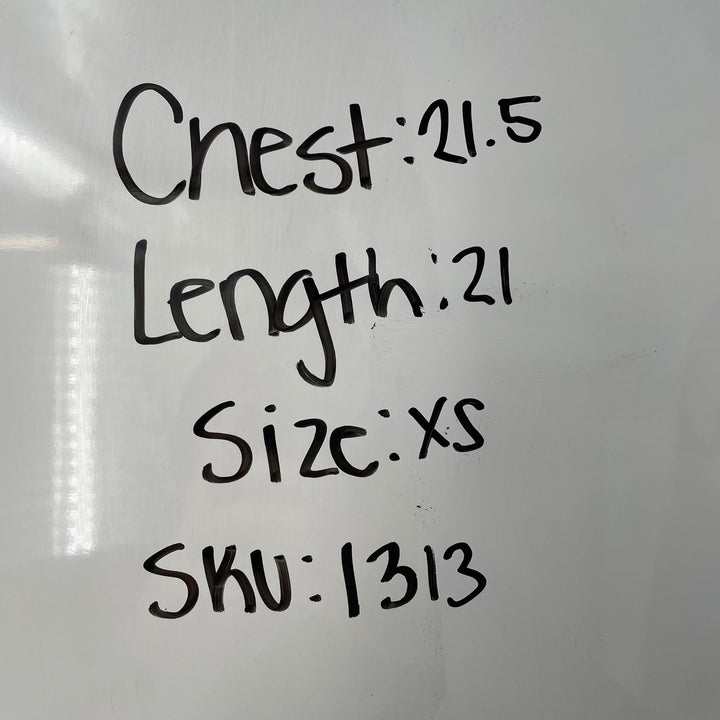 Chest:21.5
Length:21
Size:XS
SKU:1313